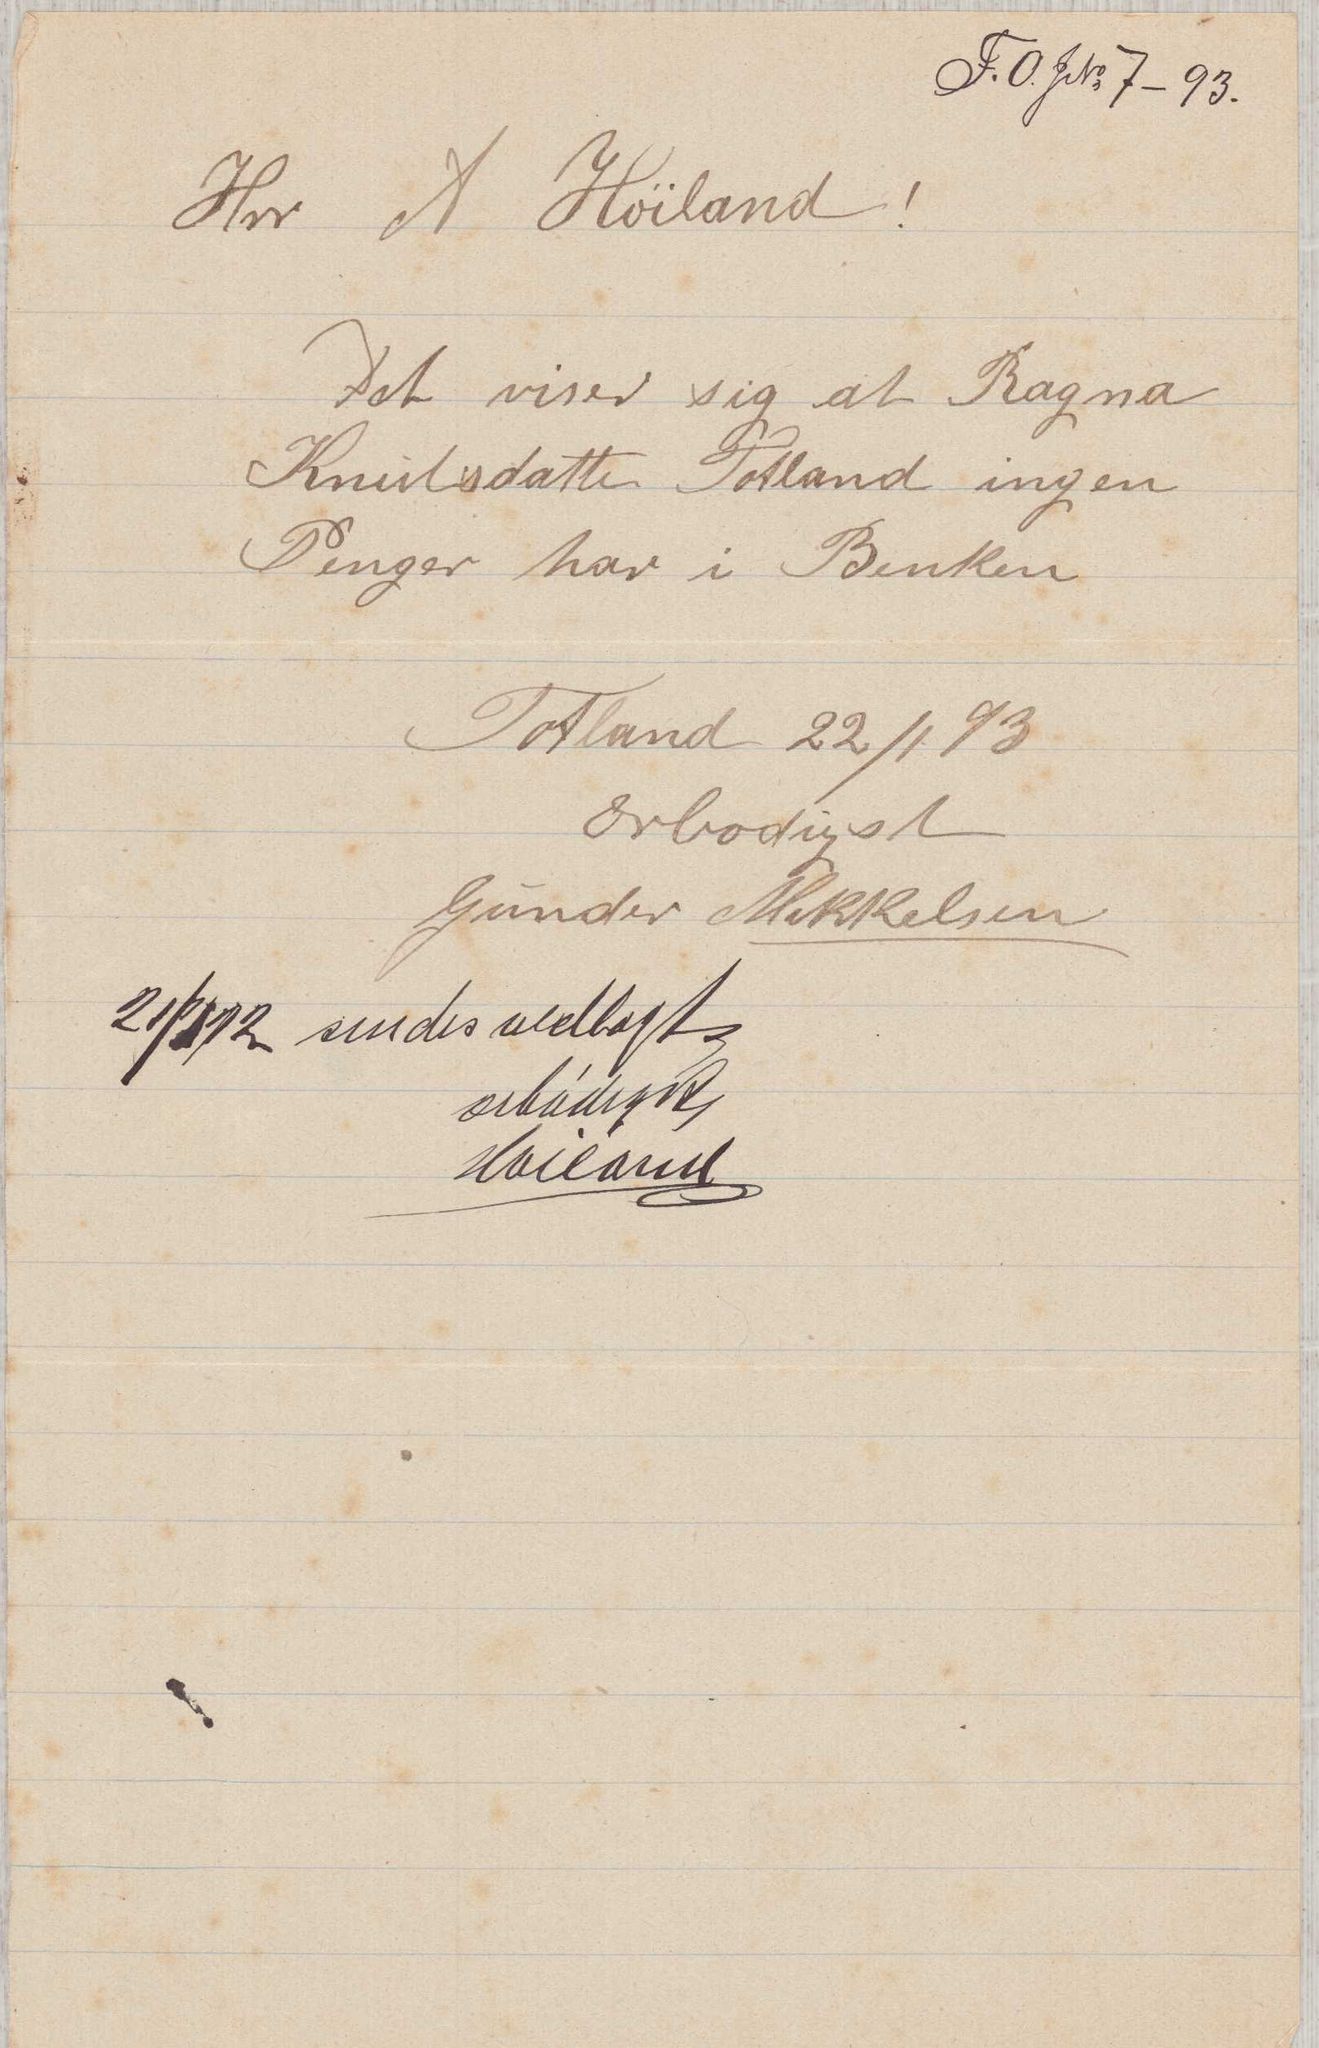 F. O. J№ 7 – 93.
Hrr A Höiland !
Det viser sig at Ragna
Knudsdatte Totland ingen
Penger har i Benken
Totland 22/1 93
Erbodigst
Gunder Mikkelsen
sendes vedlagt
erbödigst
Höiland